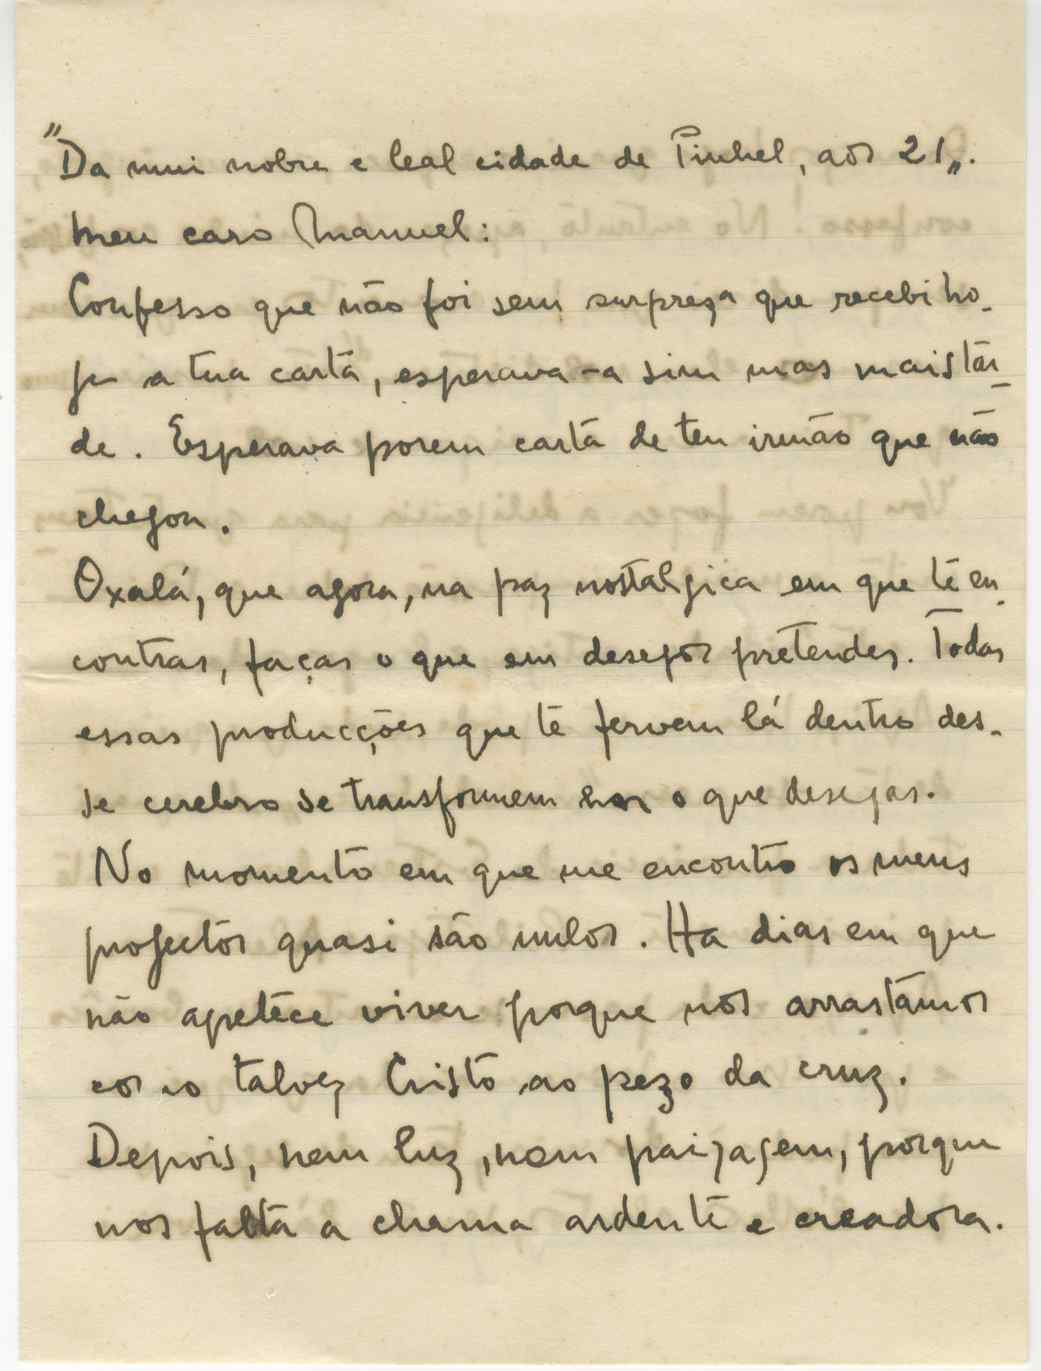 "Da mui nobre e leal cidade de Pinhel, aos 21".
Meu caro Manuel:
Confesso que não foi sem surpreza que recebi ho-
je a tua carta, esperava-a sim mas mais tar-
de. Esperava porem carta de teu irmão que não
chegou.
Oxalá, que agora, na paz nostalgica em que te en-
contras, faças o que em desejos pretendes. Todas
essas producções que te fervem lá dentro des-
se cerebro se transformem o que desejas.
No momento em que me encontro os meus
projectos quasi são nulos. Ha dias em que
não apetece viver porque nos arrastâmos
como talvez Cristo ao pezo da cruz.
Depois, nem luz, nem paizagem, porque
nos falta a chama ardente e creadora.